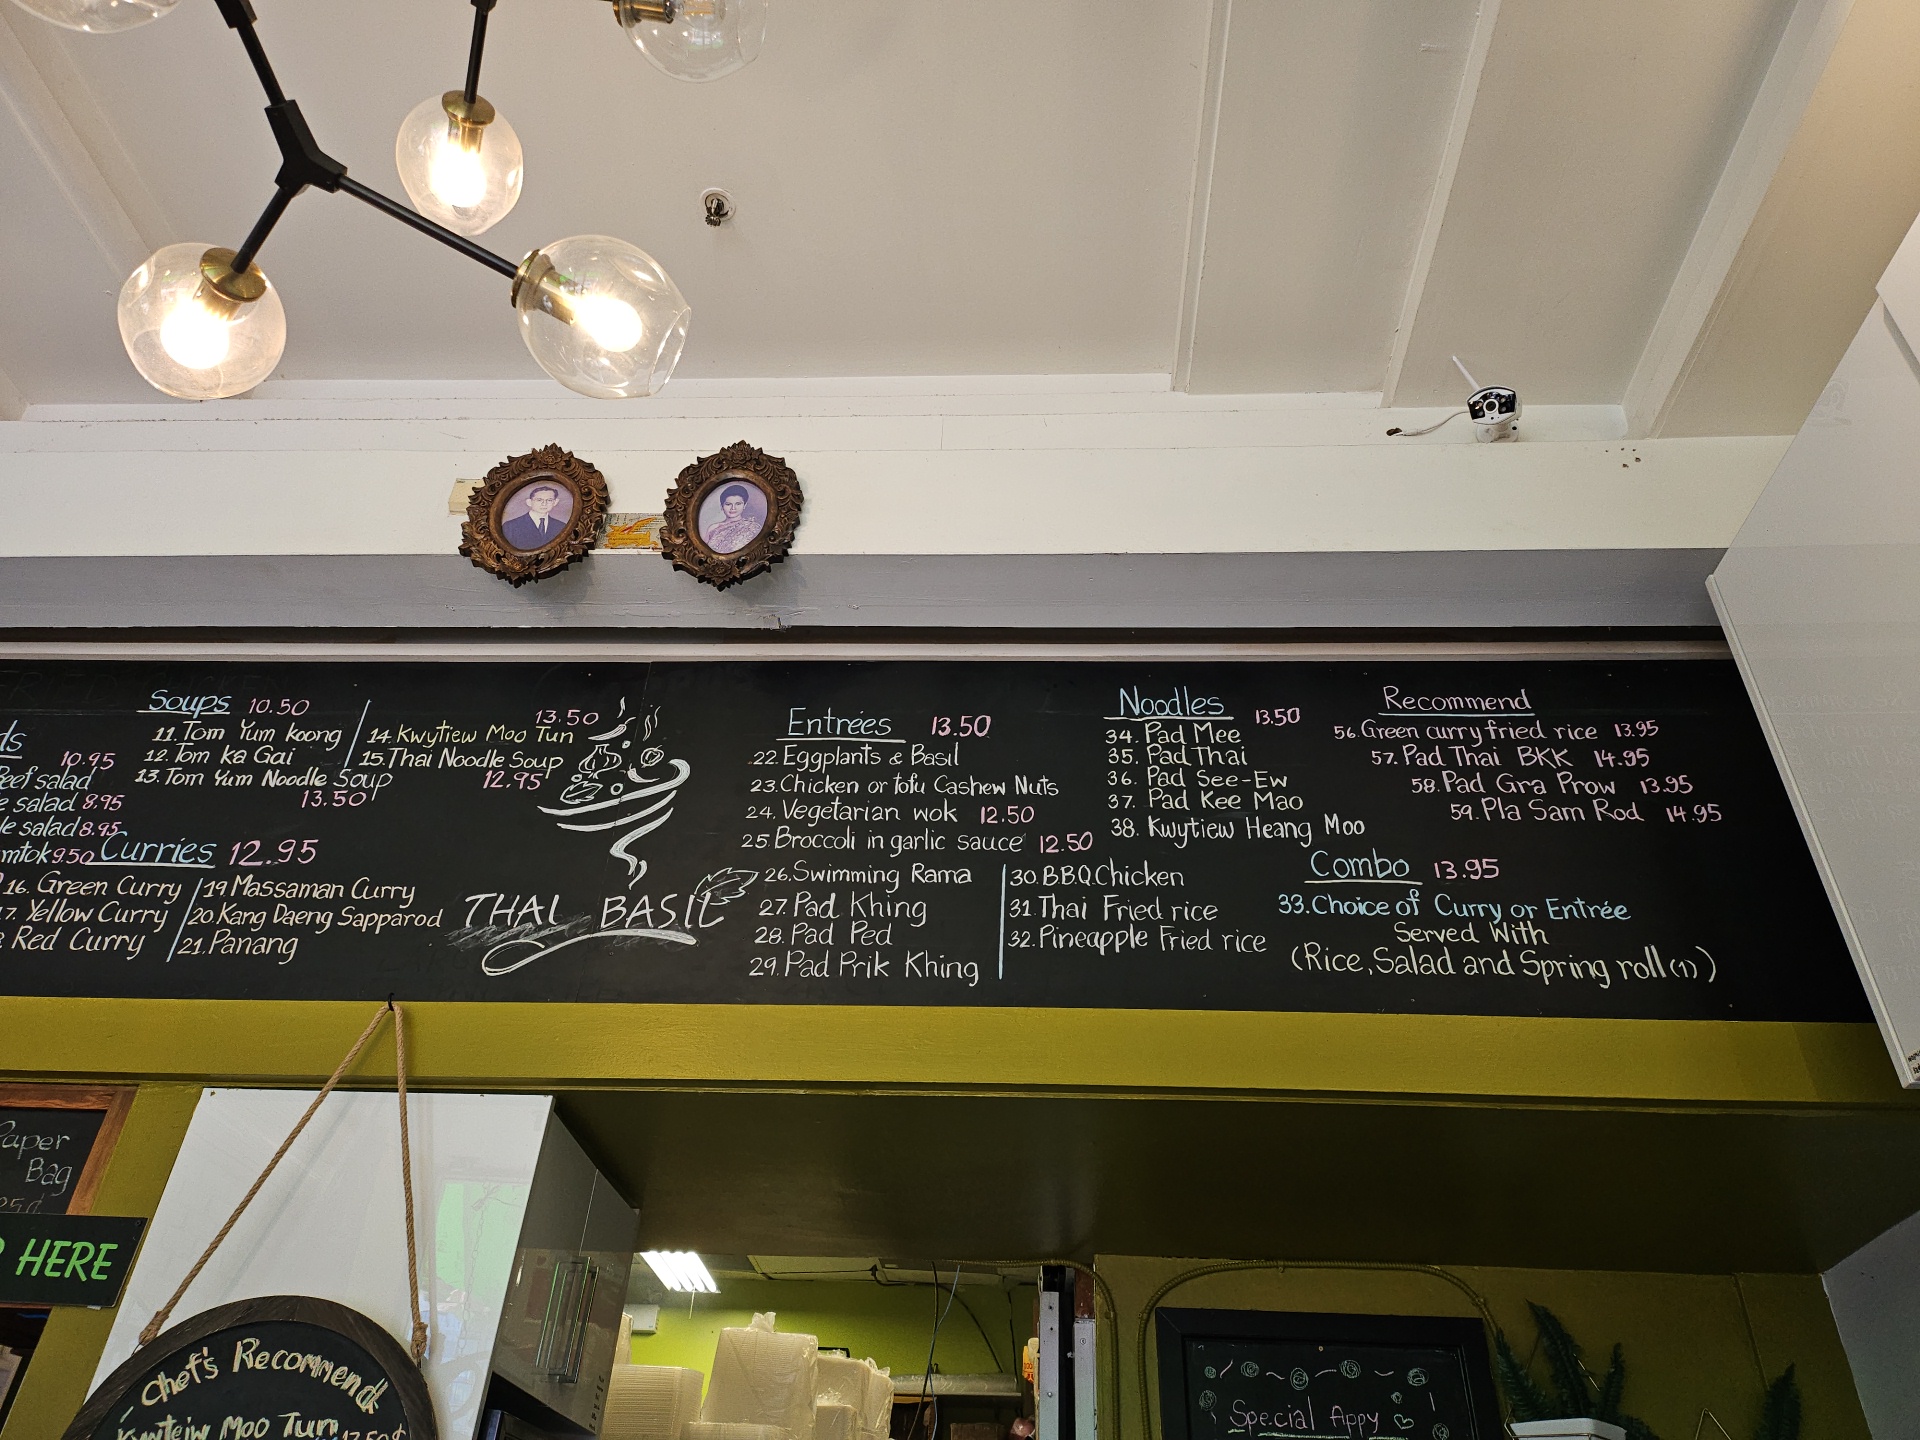 Soups 10.50
11. Tom Yum koong
12. Tom ka Gai
13. Tom Yum Noodle Soup
13.50
13.50
14. Kwytiew Moo Tun
15. Thai Noodle Soup
12.95
10.95
Beef salad
salad 8.95
salad 8.95
9.50
Curries 12.95
16. Green Curry
17. Yellow Curry
Red Curry
19 Massaman Curry
20. Kang Daeng Sapparod
21. Panang
THAI BASIL
Entrées 13.50
22. Eggplants & Basil
23. Chicken or Tofu Cashew Nuts
24. Vegetarian wok 12.50
25. Broccoli in garlic sauce 12.50
26. Swimming Rama
27. Pad Khing
28. Pad Ped
29. Pad Prik Khing
30. B.B.Q. Chicken
31. Thai Fried rice
32. Pineapple Fried rice
Noodles 13.50
34. Pad Mee
35. Pad Thai
36. Pad See-Ew
37. Pad Kee Mao
38. Kwytiew Heang Moo
Recommend
56. Green curry fried rice 13.95
57. Pad Thai BKK 14.95
58. Pad Gra Prow 13.95
59. Pla Sam Rod 14.95
Combo 13.95
33. Choice of Curry or Entrée
Served With
(Rice, Salad and Spring roll (1))
Paper
Bag
25¢
HERE
Chef's Recommend
Kwyteiw Moo Tun
Special Appy